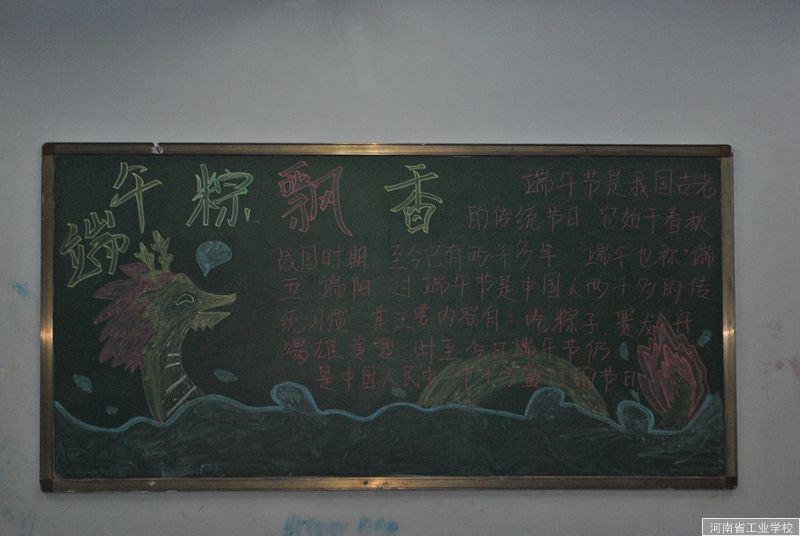 端午粽飘香
端午节是我国古老
的传统节日，它始于春秋
战国时期，至今已有两千多年，端午也称“端
五”“端阳”过端午节是中国人两千多的传
统习惯，其主要内容有：吃粽子，赛龙舟，
喝雄黄酒，时至今日端午节仍
是中国人民 十分 的节日
河南省工业学校